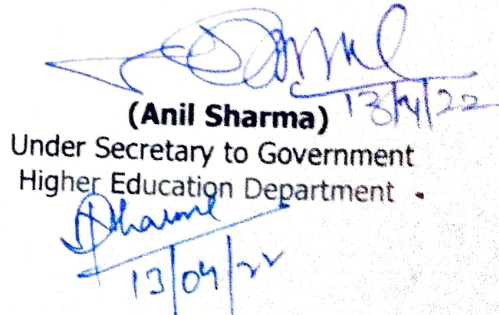 13/4/22
(Anil Sharma)
Under Secretary to Government
Higher Education Department
13/04/22